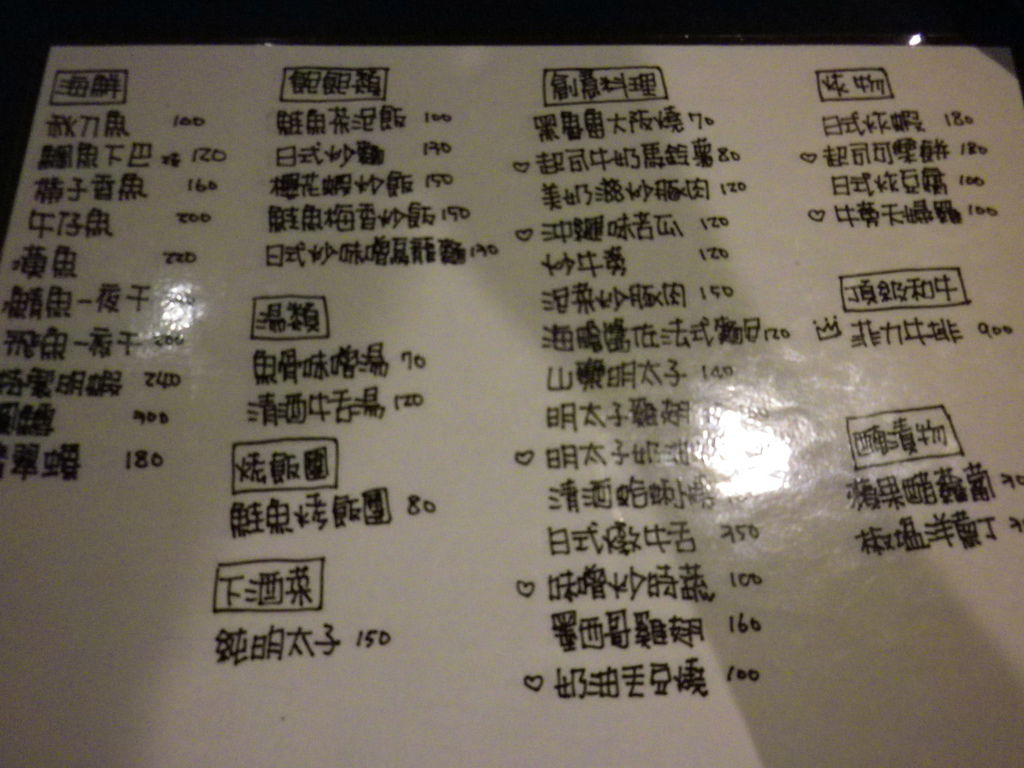 海鮮
秋刀魚 100
鯛魚下巴 120
帶子香魚 160
午仔魚 200
黃魚 220
鯖魚一夜干
飛魚一夜干 200
特製明蝦 240
300
翡翠螺 180
飽飽類
鮭魚茶泡飯 100
日式炒麵 130
櫻花蝦炒飯 150
鮭魚梅香炒飯 150
日式炒味噌烏龍麵 130
湯類
魚骨味噌湯 70
清酒牛舌湯 120
燒飯團
鮭魚烤飯團 80
下酒菜
純明太子 150
創意料理
黑魯魯大阪燒 70
♡ 起司牛奶馬鈴薯 80
美奶滋炒豚肉 120
♡ 沖繩味苦瓜 120
炒牛蒡 120
泡菜炒豚肉 150
海膽醬佐法式麵包 120
山藥明太子 140
明太子雞翅
♡ 明太子奶油
清酒蛤蜊
日式燉牛舌 350
♡ 味噌炒時蔬 100
墨西哥雞翅 160
♡ 奶油毛豆燒 100
炸物
日式炸蝦 180
♡ 起司可樂餅 180
日式炸豆腐 100
♡ 牛蒡天婦羅 100
頂級和牛
菲力牛排 900
醃漬物
蘋果醋蘿蔔
椒塩洋蔥丁